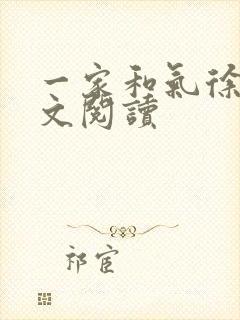 一家和氣徐
文閱讀
祁宦